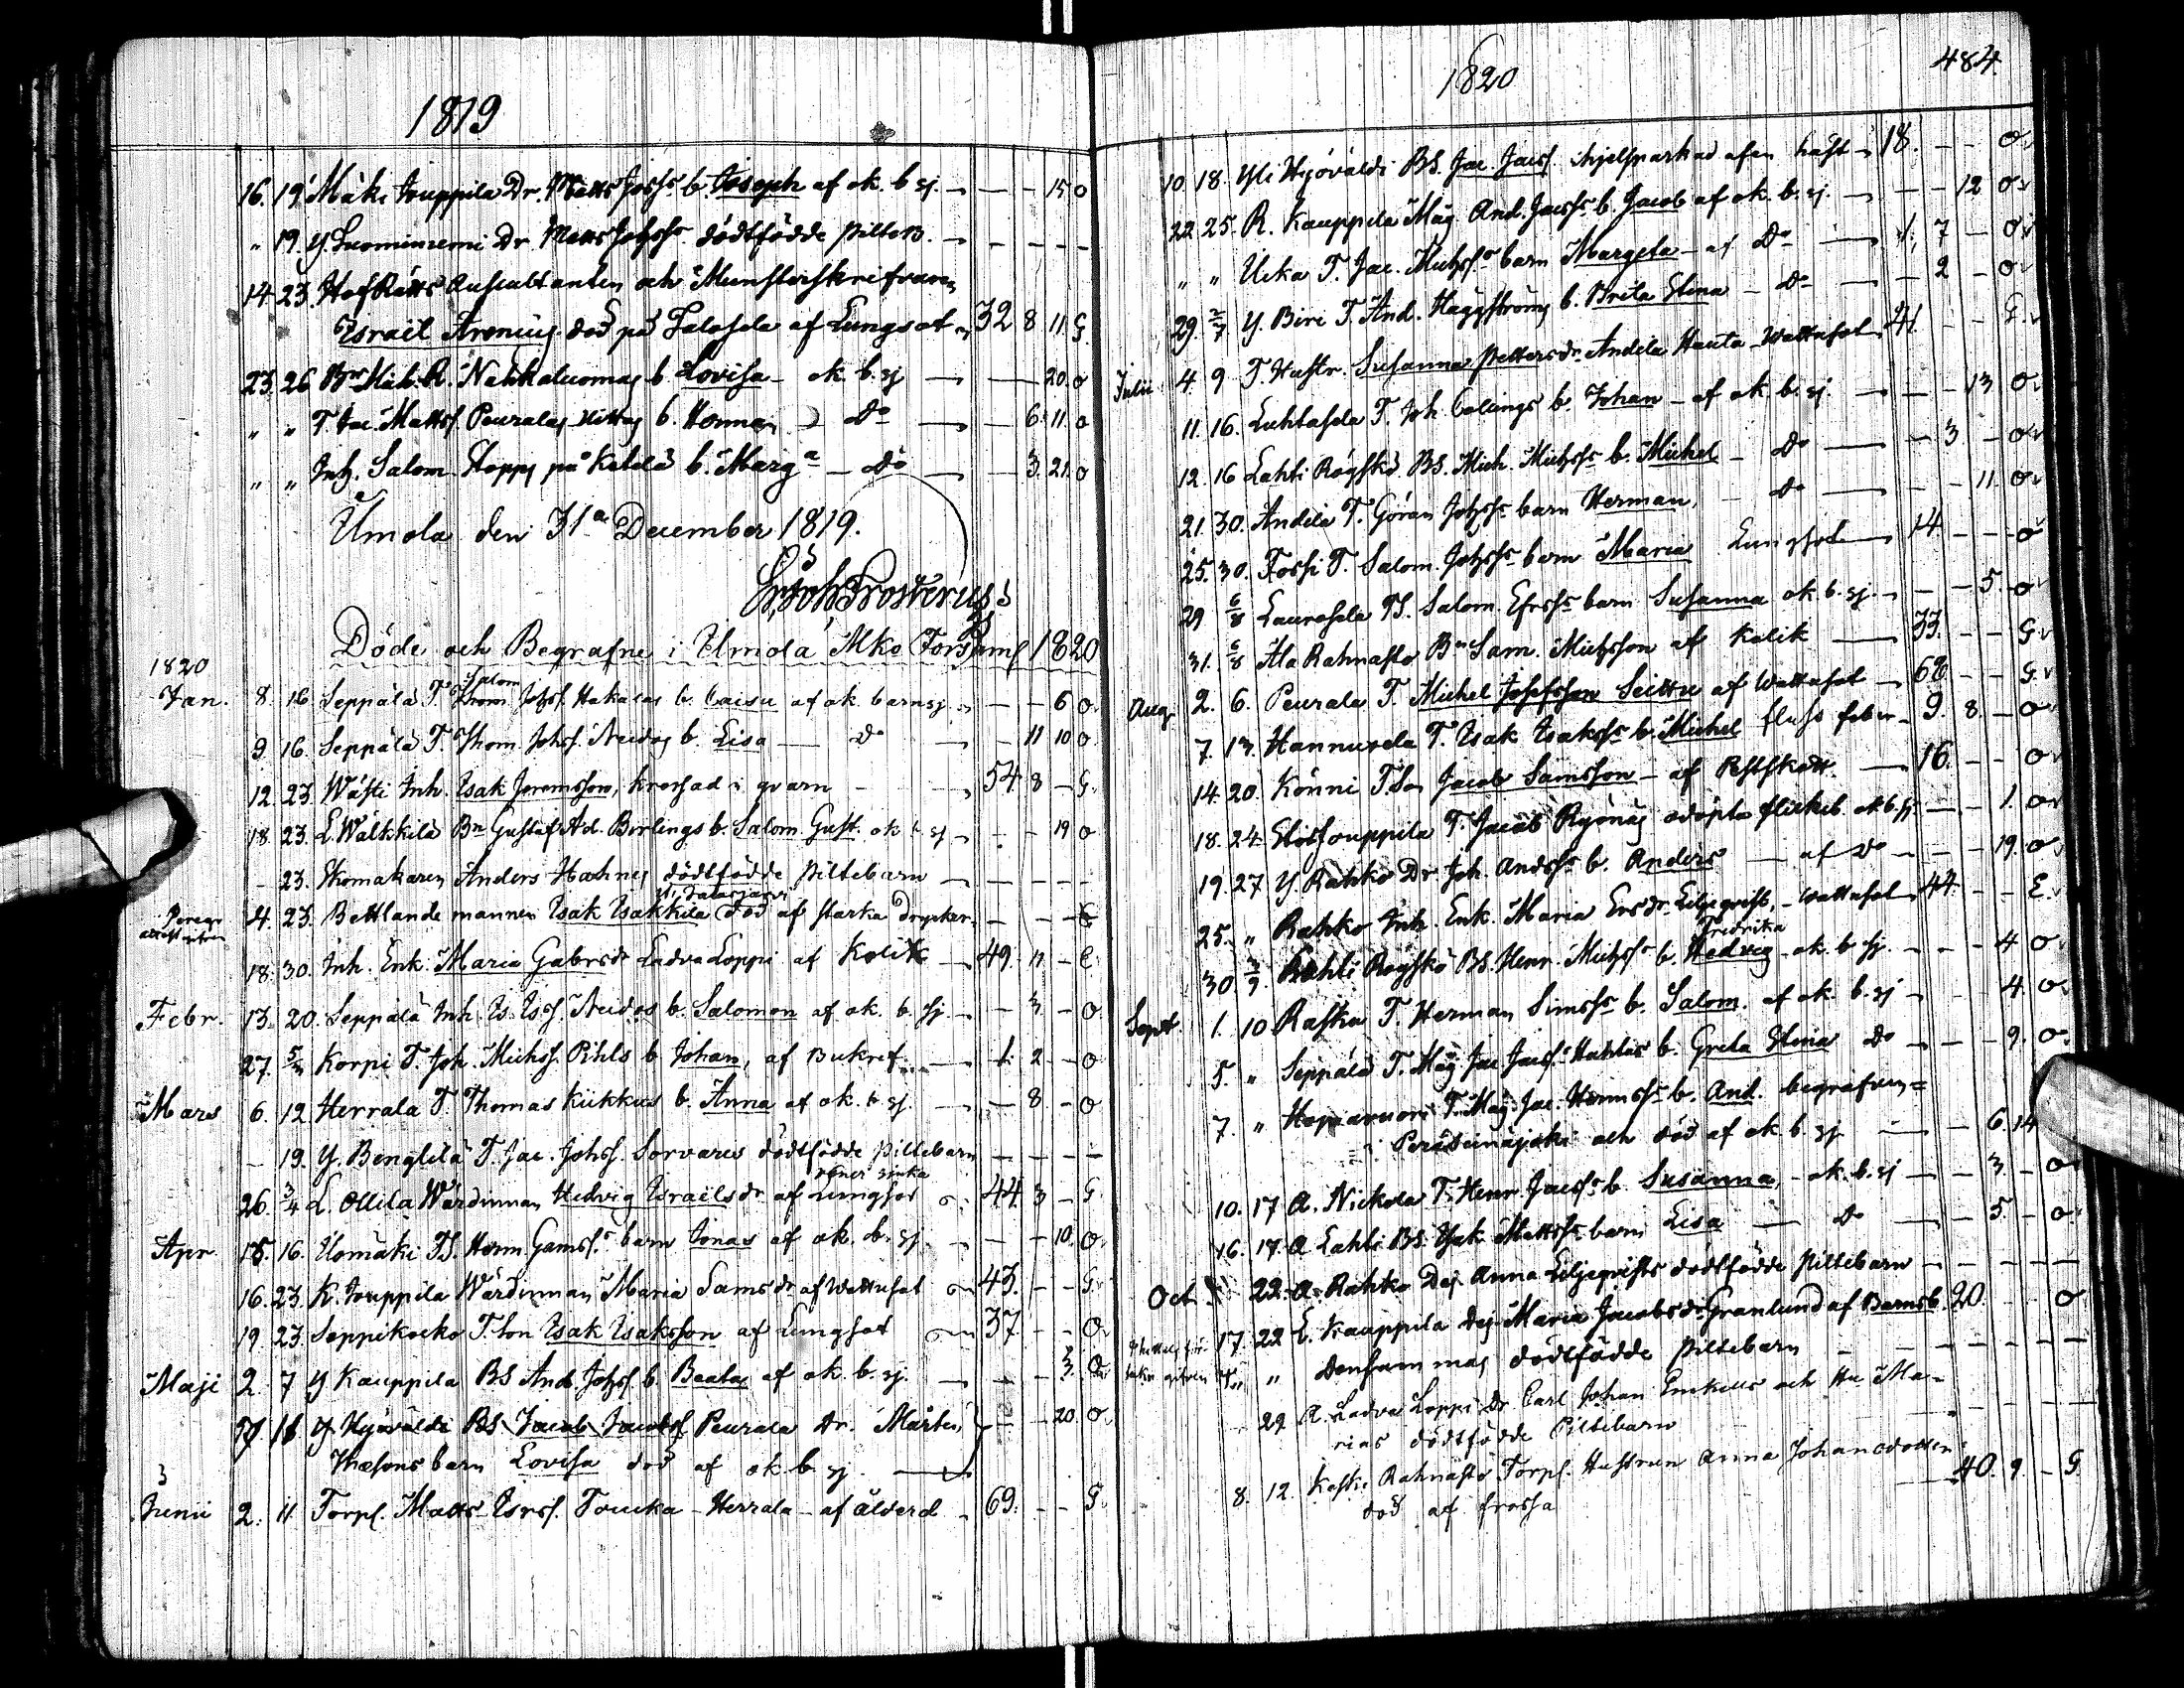 1819
16. 19. Mäki Jouppila Dr. Matts Johss b. Joseph af ok. b sj. — — 15 o
" 19. Y. Luominiemi Dr Matts Johss dödfödde Pilteb. — — — —
14. 23. HofRätts Auscultanten och Munsterskrifvaren
Israël Arenius död på Talasela af Lungsot 32 8 11. G
23. 26 Bm Mich. R. Nahkaluomas b Lovisa — ok b. sj — — 20. o
" " T. Jac. Mattss. Peuralas b. Herman — do — 6. 11. o
" " Inh. Salom. Hopps på Ketola b. Marga — do — 3. 21. o
Ilmola den 31a December 1819.
Joh Frosterus
Döde och Begrafne i Ilmola Mko Förs 1820
1820
Salom
Jan. 8. 16. Seppälä T. Johss. Hakalas b. Caisa af ok. barnsj. — — 6 o.
9 16. Seppälä T. Thom. Johss. b. Lisa — do — 11 10 o
12. 23. Wästi Inh. Isak Jeremsson, krossad i qvarn — 54. 8 — G.
18. 23. L. Wälkkilä Bn Gustaf Ad. Borlings b. Salom. Gust. ok b. sj — — 19 o
— 23. Skomakaren Anders Hahns dödfödde Piltebarn — — — —
4. 23. Bettlande mannen Isak Isakkila död af starka drycker — — —
18. 30. Inh. Enk. Maria Gabrsdr Ladva Loppi af Kolik — 49. 11 — E.
Febr. 13. 20. Seppälä Inh. Is. Iss. b. Salomon af ok. b. sj. — 3 — o
27. 5/3 Korpi T. Joh. Michss. Pihls b Johan, af Bukref — 1. 2 — o
Mars 6. 12 Herrala T. Thomas Kiikkus b. Anna af ok. b sj. — 8. — o
— 19. Y. Benglilä T. Jac. Johss. Sorvaris dödfödde Piltebarn — — —
26. 3/4 L. Ollila Wärdinnan Hedvig Israëlsdr af Lungsot 44 3 — G
Apr. 15. 16. Uomäki TS. Herm. Gamss. barn Jonas af ok. b. sj. — — 10. o.
16. 23. K. Jouppila Wärdinnan Maria Samsdr af Wattusot 43. — — G.
19 23. Seppikocko T. Son Isak Isaksson af Lungsot 37. — — o.
Maji 2. 7 Y Kauppila BS And. Johss. b. Beata af ok. b. sj. — — 3. o
Y Hyövälti BS Jacob Jacobss Peurala Dr. Mårten — — 20. o.
Thosons barn Lovisa död af ok b sj.
3
Junii 2. 11 Torp. Matts Isrss. Toucka — Herrala — af ålderd — 69. — — G.
1820
484
10. 18. Yli Hyövälti BS. Jac. Jacss. ihjelsparkad af en häst 18. — — o
22. 25. R. Kauppila Måg And. Jacss b. Jacob af ok. b. sj. — — 12 o
" " Ucka T. Jac. Michss barn Margeta — af do — 1. 7 — o
29. 2/7 Y. Biri T. And. Häggströms b. Brita Stina — do — 2 — o
Julii 4. 9 T. Hustr. Susanna Pettersdr Andila Hauta Wattusot 41. — — G.
11. 16. Luhtasela T. Joh. Colings b. Johan — af ok. b. sj. — — 13 o
12. 16 Lahti Rögskö BS. Mich. Michss b. Michel — do — 3 — o
21. 30. Andila T. Göran Johss barn Herman, — do — — 11 o
25. 30. Fossi T. Salom. Johss barn Maria Lungsot 14. — — o
29 6/8 Laurosela TS. Salom. Efrss barn Susanna ok b. sj. — — 5. o
31. 6/8 Ala Rahnasto Bn Sam. Michsson af Kolik — 33. — — G
Aug. 2. 6. Peurala T. Michel Josefsson Seittu af Wattusot — 68 — — G.
7. 13. Hannuxela T. Isak Isakss b. Michel fluss feber — 9. 8. — o
14. 20. Könni T. So Jacob Samsson — af — 16. — — o
18. 24. T. Jacob odöpta flickeb. ok b. sj — — 1. o
19. 27 Y. Rahko Dr Joh. Andss b. Anders — af do — — 19. o
25. " Rahko Inh. Enk. Maria Ersdr Liljeqvist — Wattusot 44. — — E.
Fredrika
30. 3/9 Lahti Rögskö BS. Henr. Michss b. Hedvig — ok. b sj. — — 4 o
Sept 1. 10 Raska T. Herman Simss b. Salom. af ok. b. sj — — 4. o
5. " Seppälä T. Måg Jac Jacss b. Greta Stina do — — 9. o.
7. " T. Måg Jac. Hermss b. And. begrafven =
i Peräseinäjoki och död af ok b. sj — — 6. 14
10. 17 A. Nickola T. Henr. Jacss b. Susanna, — ok. b. sj — — 3. — o
16. 17. A Lahti BS. Isak Mattss barn Lisa — do — — 5. — o.
Oct. 22. A. Rahko Dej. Anna Liljeqvists dödfödde Piltebarn — — — —
17. 22 L. Kauppila Dej. Maria Jacobsdr Granlund af Barnsb. 20. o
" Densammas dödfödde Piltebarn — — — —
22 A. Ladva Loppi Dr Carl Johan Enkells och Hu Ma-
rias dödfödde Piltebarn
8. 12. Keski Rahnasto Torp. Hustrun Anna Johansdotter 40. 9. — G.
död af frossa